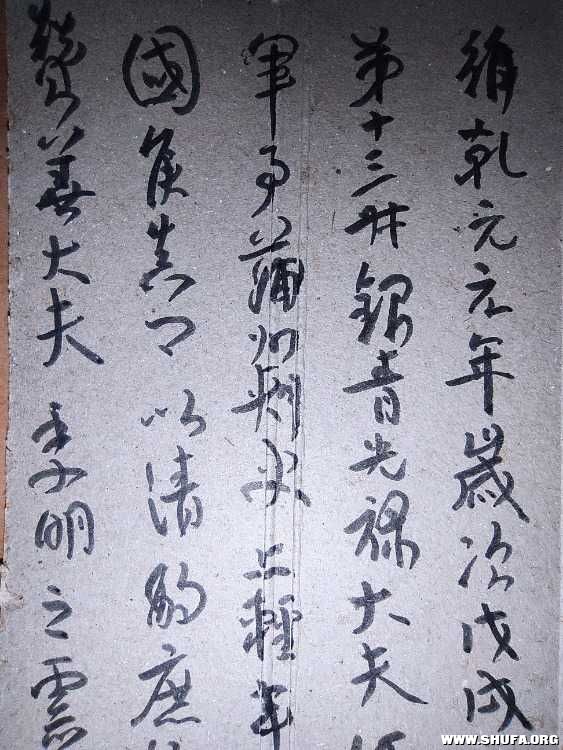 維乾元元年歲次戊戌
第十三叔銀青光祿大夫
軍事蒲州刺史上輕車
國侯真卿以清酌庶
贊善大夫季明之靈
WWW.SHUFA.ORG